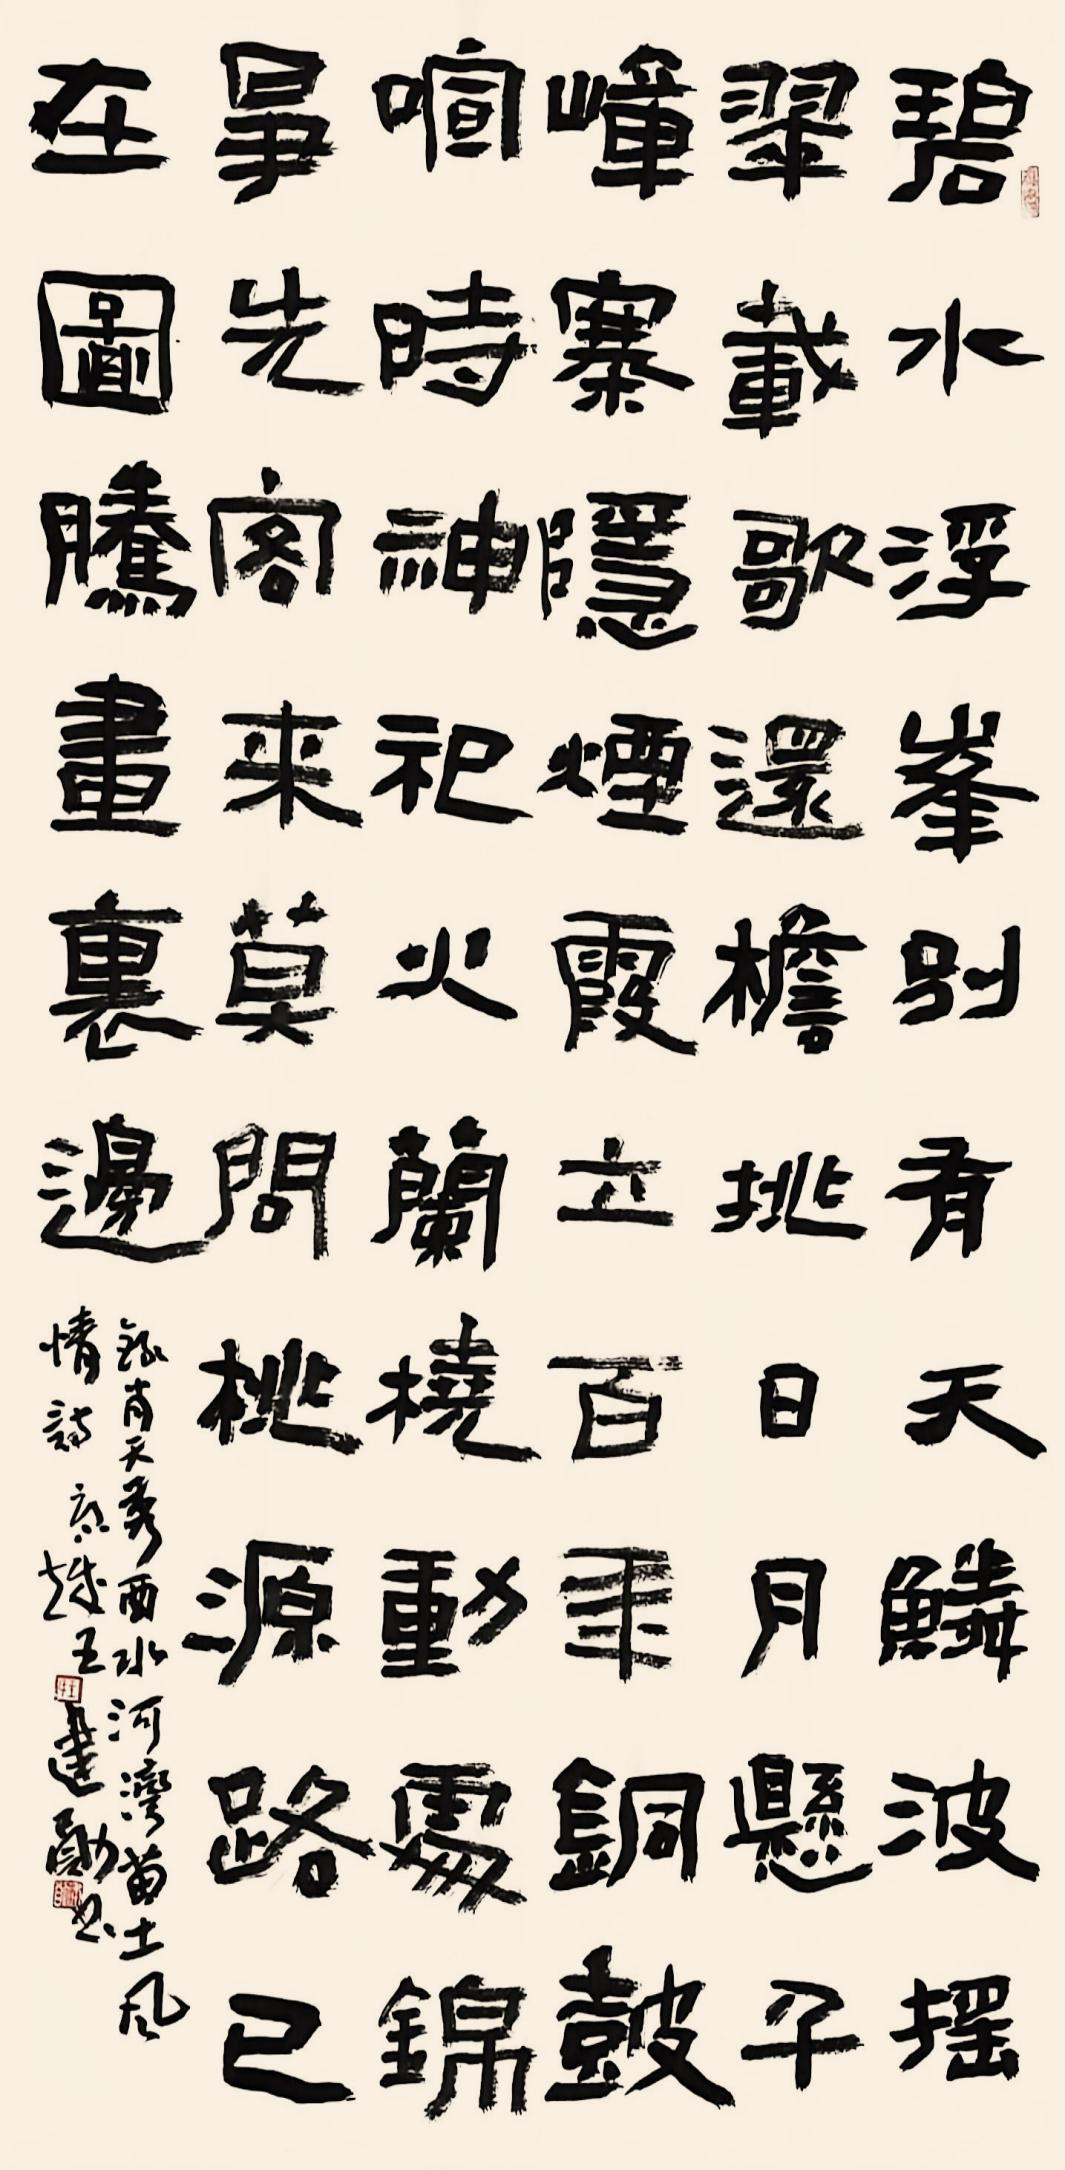 碧水浮峯别有天鱗波摇
翠載歌還檐挑日月懸千
嶂寨隱煙霞立百年銅鼓
喧時神祀火蘭橈動處錦
爭先客來莫問桃源路已
在圖騰畫裏邊
録肖天秀酉水河灣苗土風
情詩 王建勛書